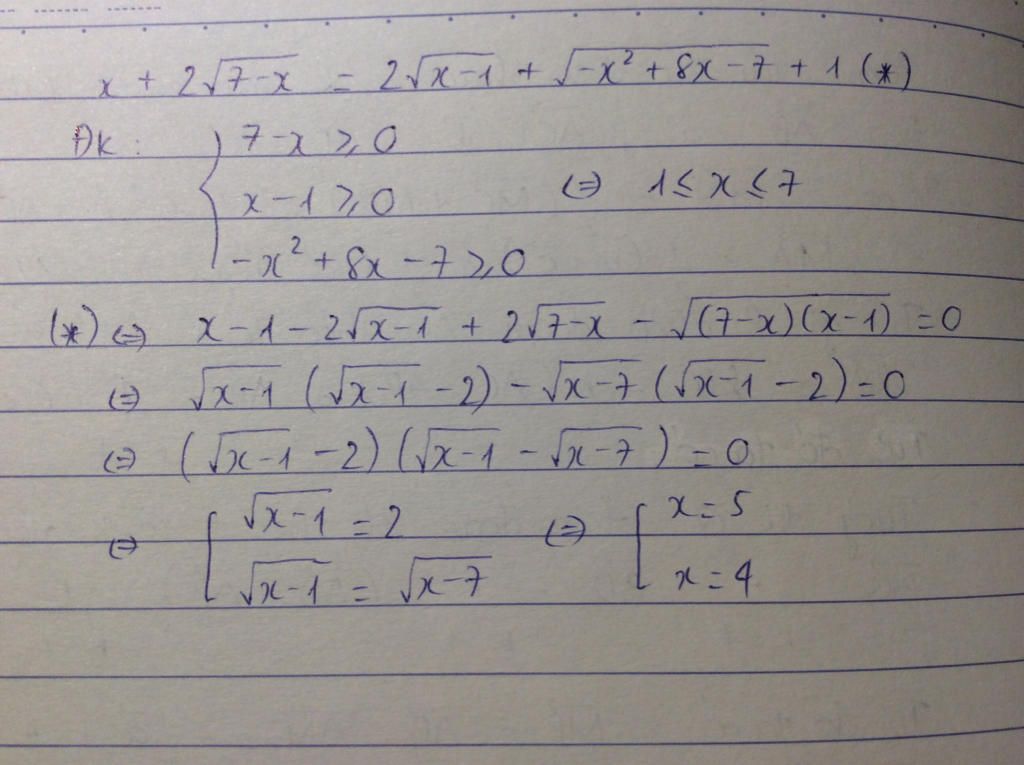 x + 2√(7-x) = 2√(x-1) + √(-x² + 8x - 7) + 1 (*)
ĐK: { 7-x ≥ 0
x - 1 ≥ 0 ⇔ 1 ≤ x ≤ 7
-x² + 8x - 7 ≥ 0
(*) ⇔ x - 1 - 2√(x-1) + 2√(7-x) - √((7-x)(x-1)) = 0
⇔ √(x-1) (√(x-1) - 2) - √(x-7) (√(x-1) - 2) = 0
⇔ (√(x-1) - 2)(√(x-1) - √(x-7)) = 0
⇔ [ √(x-1) = 2 ⇔ [ x = 5
√(x-1) = √(x-7) x = 4